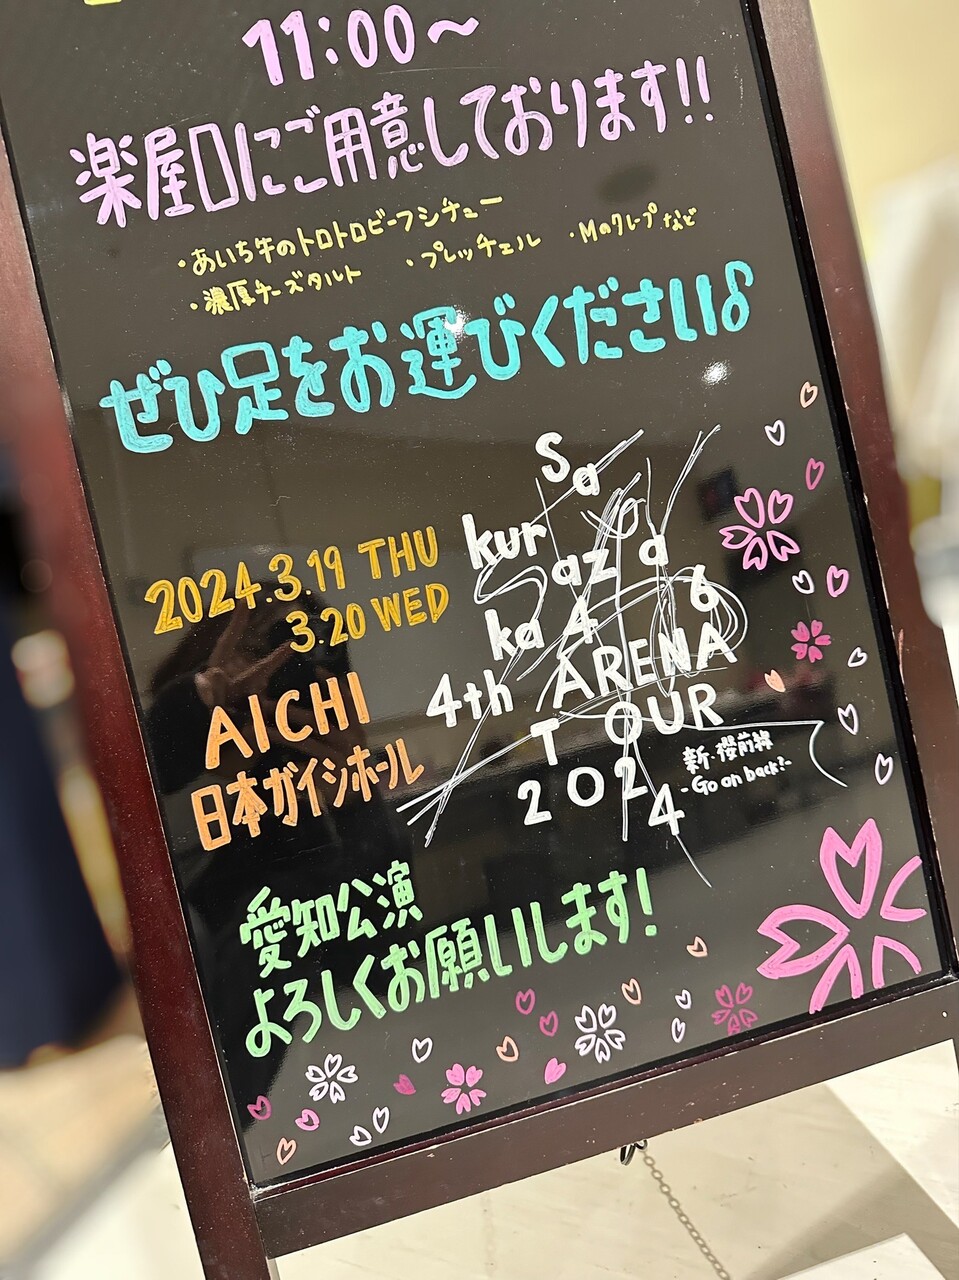 11:00～
楽屋口にご用意しております!!
・あいち牛のトロトロビーフシチュー
・濃厚チーズタルト ・プレッチェル ・Mのクレープ など
ぜひ足をお運びください♪
2024.3.19 THU
3.20 WED
AICHI
日本ガイシホール
Sa
kur
az a
ka 4 6
4th ARENA
T OUR
202 4
新・櫻前線
-Go on back?-
愛知公演
よろしくお願いします!